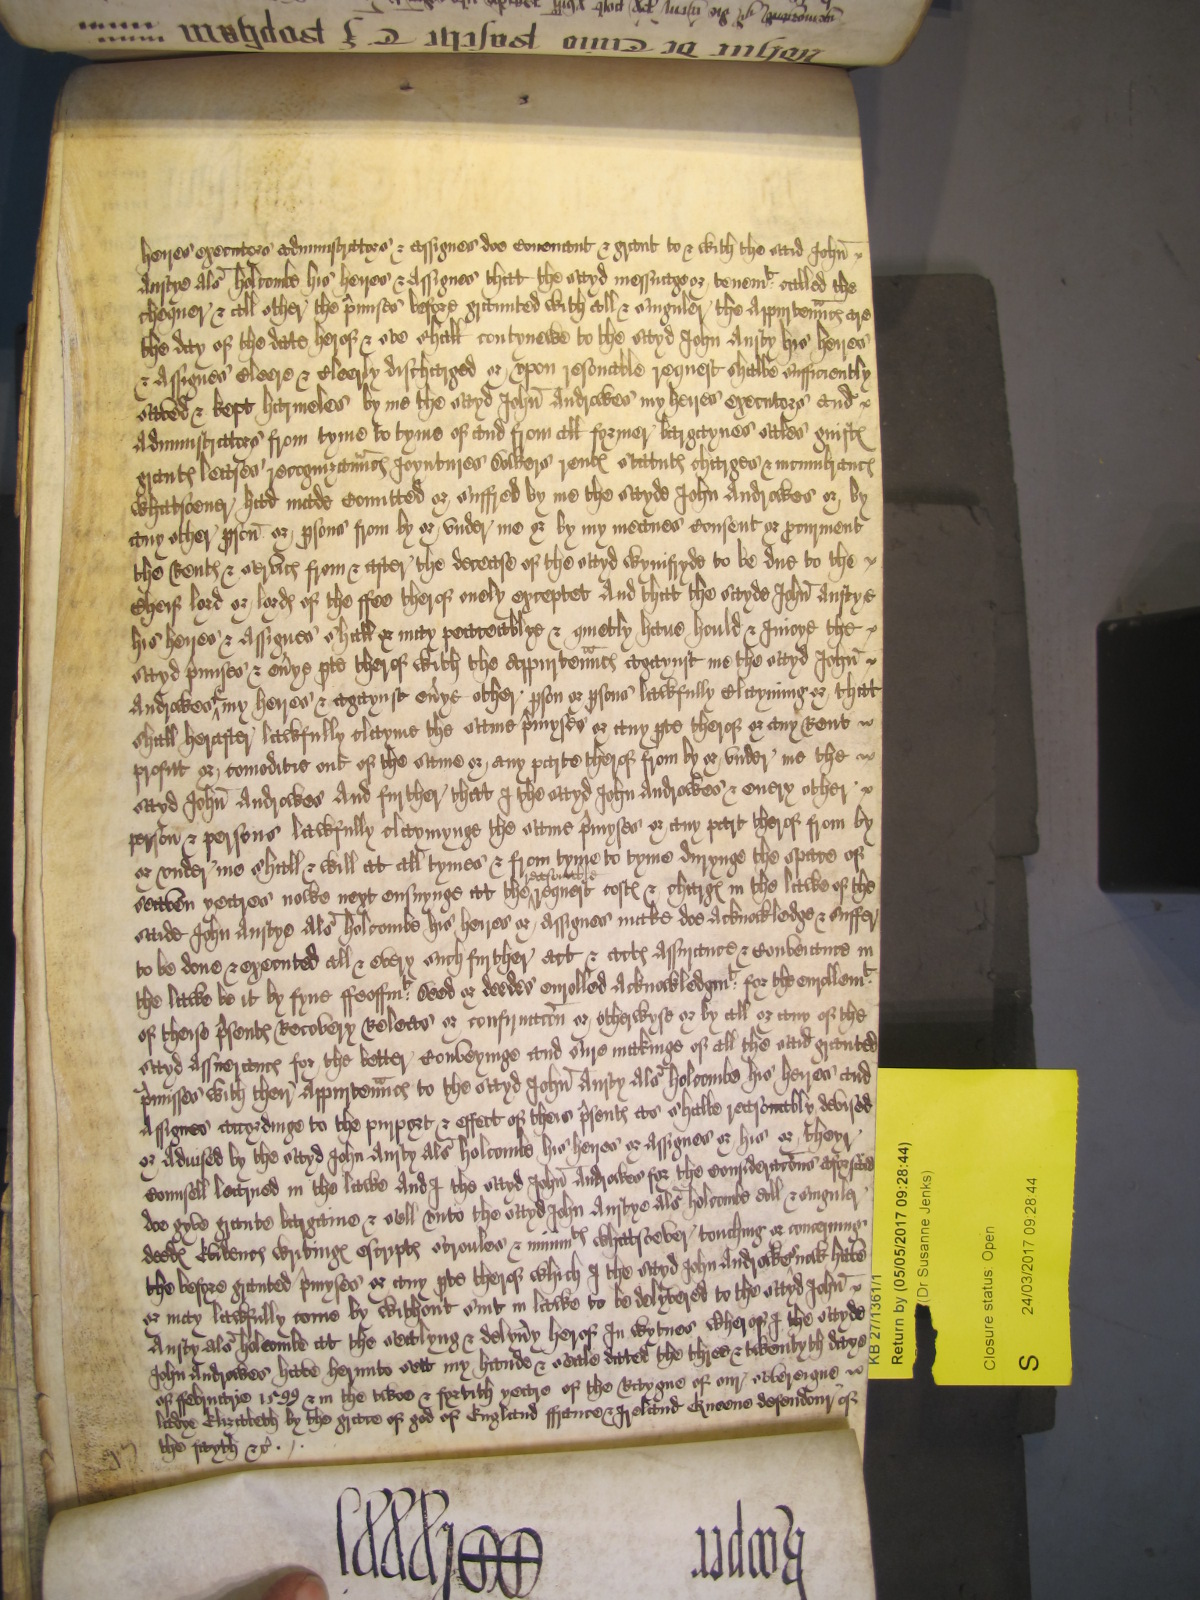 heires executors administrators & assignes doe Covenant & grant to & with the said John
Anstye als Holcombe his heires & Assignes that the sayd messuage or tenemt called the
Chequer & all other the pmisses before graunted with all & singuler the Appurtennc are
the day of the date herof & soe shall contynewe to the sayd John Ansty his heires
& Assignes Cleere & Cleerly discharged or upon resonable request shalbe sufficiently
saved & kept harmeles by me the sayd John Androwes my heires executors and
Administrators from tyme to tyme of and from all former bargaynes sales guift
graunt leases recognizaunc Joyntures Dowers rent statut charges & incumbranc
whatsoever had made Comitted or suffred by me the sayde John Androwes or by
any other pson or psons from by or under me or by my meanes Consent or procurment
the Rent & servic from & after the decease of the sayd Wynifryde to be due to the
Cheif lord or lord of the ffee therof onely excepted And that the sayde John Anstye
his heires & Assignes shall & may peaceablye & quietly have hould & Injoye the
sayd pmises & evye pte therof with the appurtennc agaynst me the sayd John
Androwes my heires & agaynst evye other pson or psons lawfully Clayming or that
shall herafter lawfully clayme the same pmyses or any pte therof or any Rent
profitt or comoditie out of the same or any parte therof from by or under me the
sayd John Androwes And further that I the sayd John Androwes & every other
person & persons lawfully claymynge the same pmyses or any part therof from by
or under me shall & will at all tymes & from tyme to tyme durynge the space of
seaven yeares nowe next ensuynge at the reasonable request cost & charg in the lawe of the
saide John Anstye als Holcombe his heires or assignes make doe Acknowledge & suffer
to be done & executed all & every such further act & acts Assurance & Conveiance in
the lawe be it by fyne ffeoffmt Deed or deedes enrolled Acknowledgmt for the enrollemt
of theise psent Recovery Release or confirmacon or otherwyse or by all or any of the
sayd assueranc for the better Conveyinge and sure makinge of all the said graunted
pmisses with their Appurtennc to the sayd John Ansty als Holcombe his heires and
Assignes accordinge to the purport & effect of theis psent as shalbe reasonably devised
or Advised by the sayd John Ansty als Holcombe his heires or assignes or his or theyr
Counsell learned in the lawe And I the sayd John Androwes for the Consideracons aforsaid
doe gyve graunte bargaine & sell unto the sayd John Anstye als Holcombe all & singuler
deed Evidenc writing escript scroules & minimt whatsoever touching or concerning
the before granted pmyses or any pte therof which I the sayd John Androwes now have
or may lawfully come by without suit in lawe to be delyvered to the sayd John
Ansty als Holcombe at the sealyng & delyvy herof In wytnes wherof I the sayde
John Androwes have herunto sett my hande & seale dated the three & twentyth daye
of februarie 1599 & in the twoe & fortith yeare of the Raygne of our sovereigne
ladye Elizabeth by the grace of god of England ffrance & Ireland Queene defendour of
the fayth &c.
Roper
KB 27/1361/1
Return by (05/05/2017 09:28:44)
(Dr Susanne Jenks)
Closure status: Open
S 24/03/2017 09:28:44